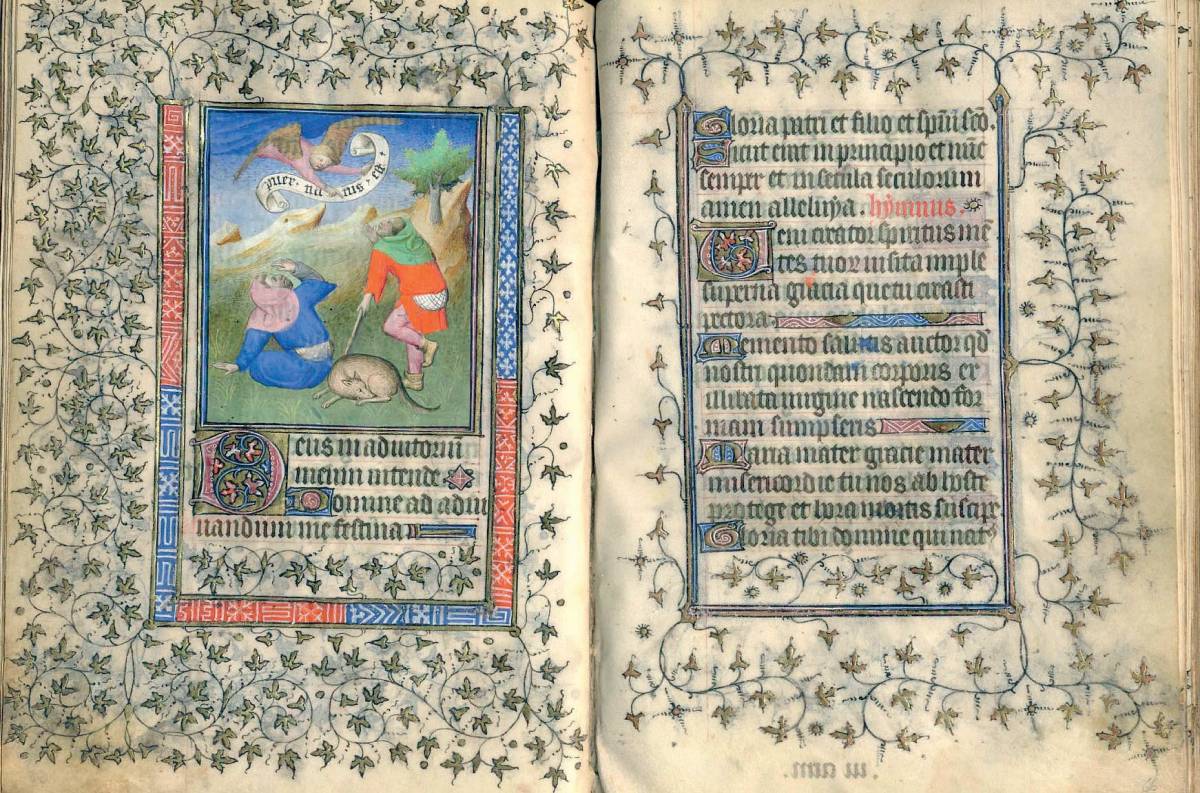 puer · na   tus · est
Deus in adiutoriū
meum intende
Domine ad adiu
uandum me festina
Gloria patri et filio et spūi sc̄o.
Sicut erat in principio et nūc
semper et in secula seculorum
amen alleluya. hymnus.
Veni creator spiritus mē
tes tuor̄ uisita imple
superna gracia que tu creasti
pectora
Memento salutis auctor qd̄
nostri quondam corporis ex
illibata uirgine nascendo for
mam sumpseris
Maria mater gracie mater
misericordie tu nos ab hoste
protege et hora mortis suscipe
Gloria tibi domine qui nat⁹